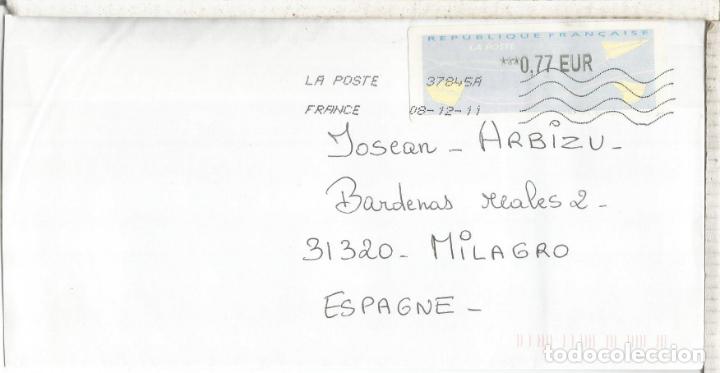 REPUBLIQUE FRANÇAISE
LA POSTE
***0,77 EUR
LA POSTE 37845A
FRANCE 08-12-11
Josean - ARBIZU -
Bardenas reales 2 -
31320 - MILAGRO
ESPAGNE -
todocoleccion